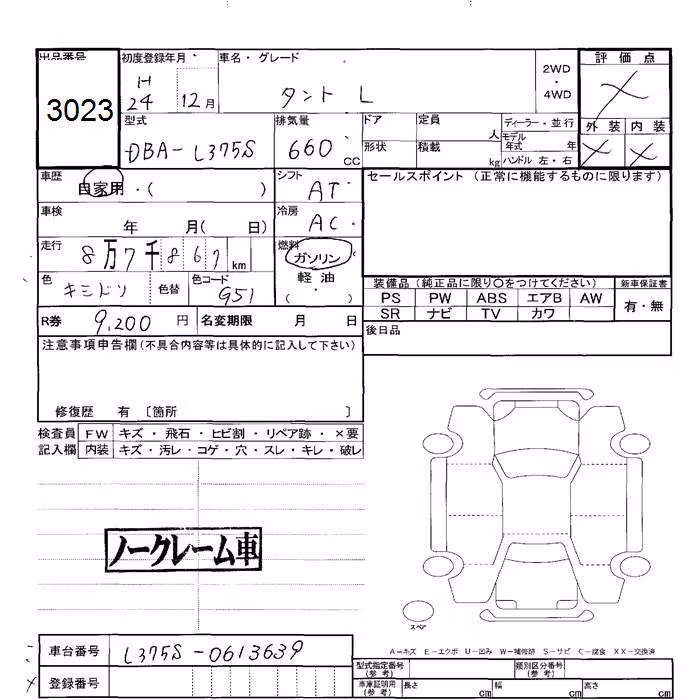 出品番号 初度登録年月 車名・グレード 2WD・4WD 評価点
3023 H24 12月 タント L
外装 内装
型式 排気量 ドア 定員 人 ディーラー・並行
DBA-L375S 660 cc 形状 積載 kg モデル年式 年
ハンドル 左・右
車歴 自家用・( ) シフト AT セールスポイント (正常に機能するものに限ります)
車検 年 月( 日) 冷房 AC
走行 8万7千867 km 燃料 ガソリン
軽油
( )
色 キミドリ 色替 色コード G51
装備品 (純正品に限り○をつけてください) 新車保証書
PS PW ABS エアB AW 有・無
SR ナビ TV カワ
R券 9,200 円 名変期限 月 日 後日品
注意事項申告欄(不具合内容等は具体的に記入して下さい)
修復歴 有 〔箇所 〕
検査員 FW キズ・飛石・ヒビ割・リペア跡・×要
記入欄 内装 キズ・汚レ・コゲ・穴・スレ・キレ・破レ
ノークレーム車
スペア
A-キズ E-エクボ U-凹み W-補修跡 S-サビ C-腐食 XX-交換済
車台番号 L375S-0613639
登録番号
型式指定番号(参考) 類別区分番号(参考)
車庫証明用(参考) 長さ cm 幅 cm 高さ cm